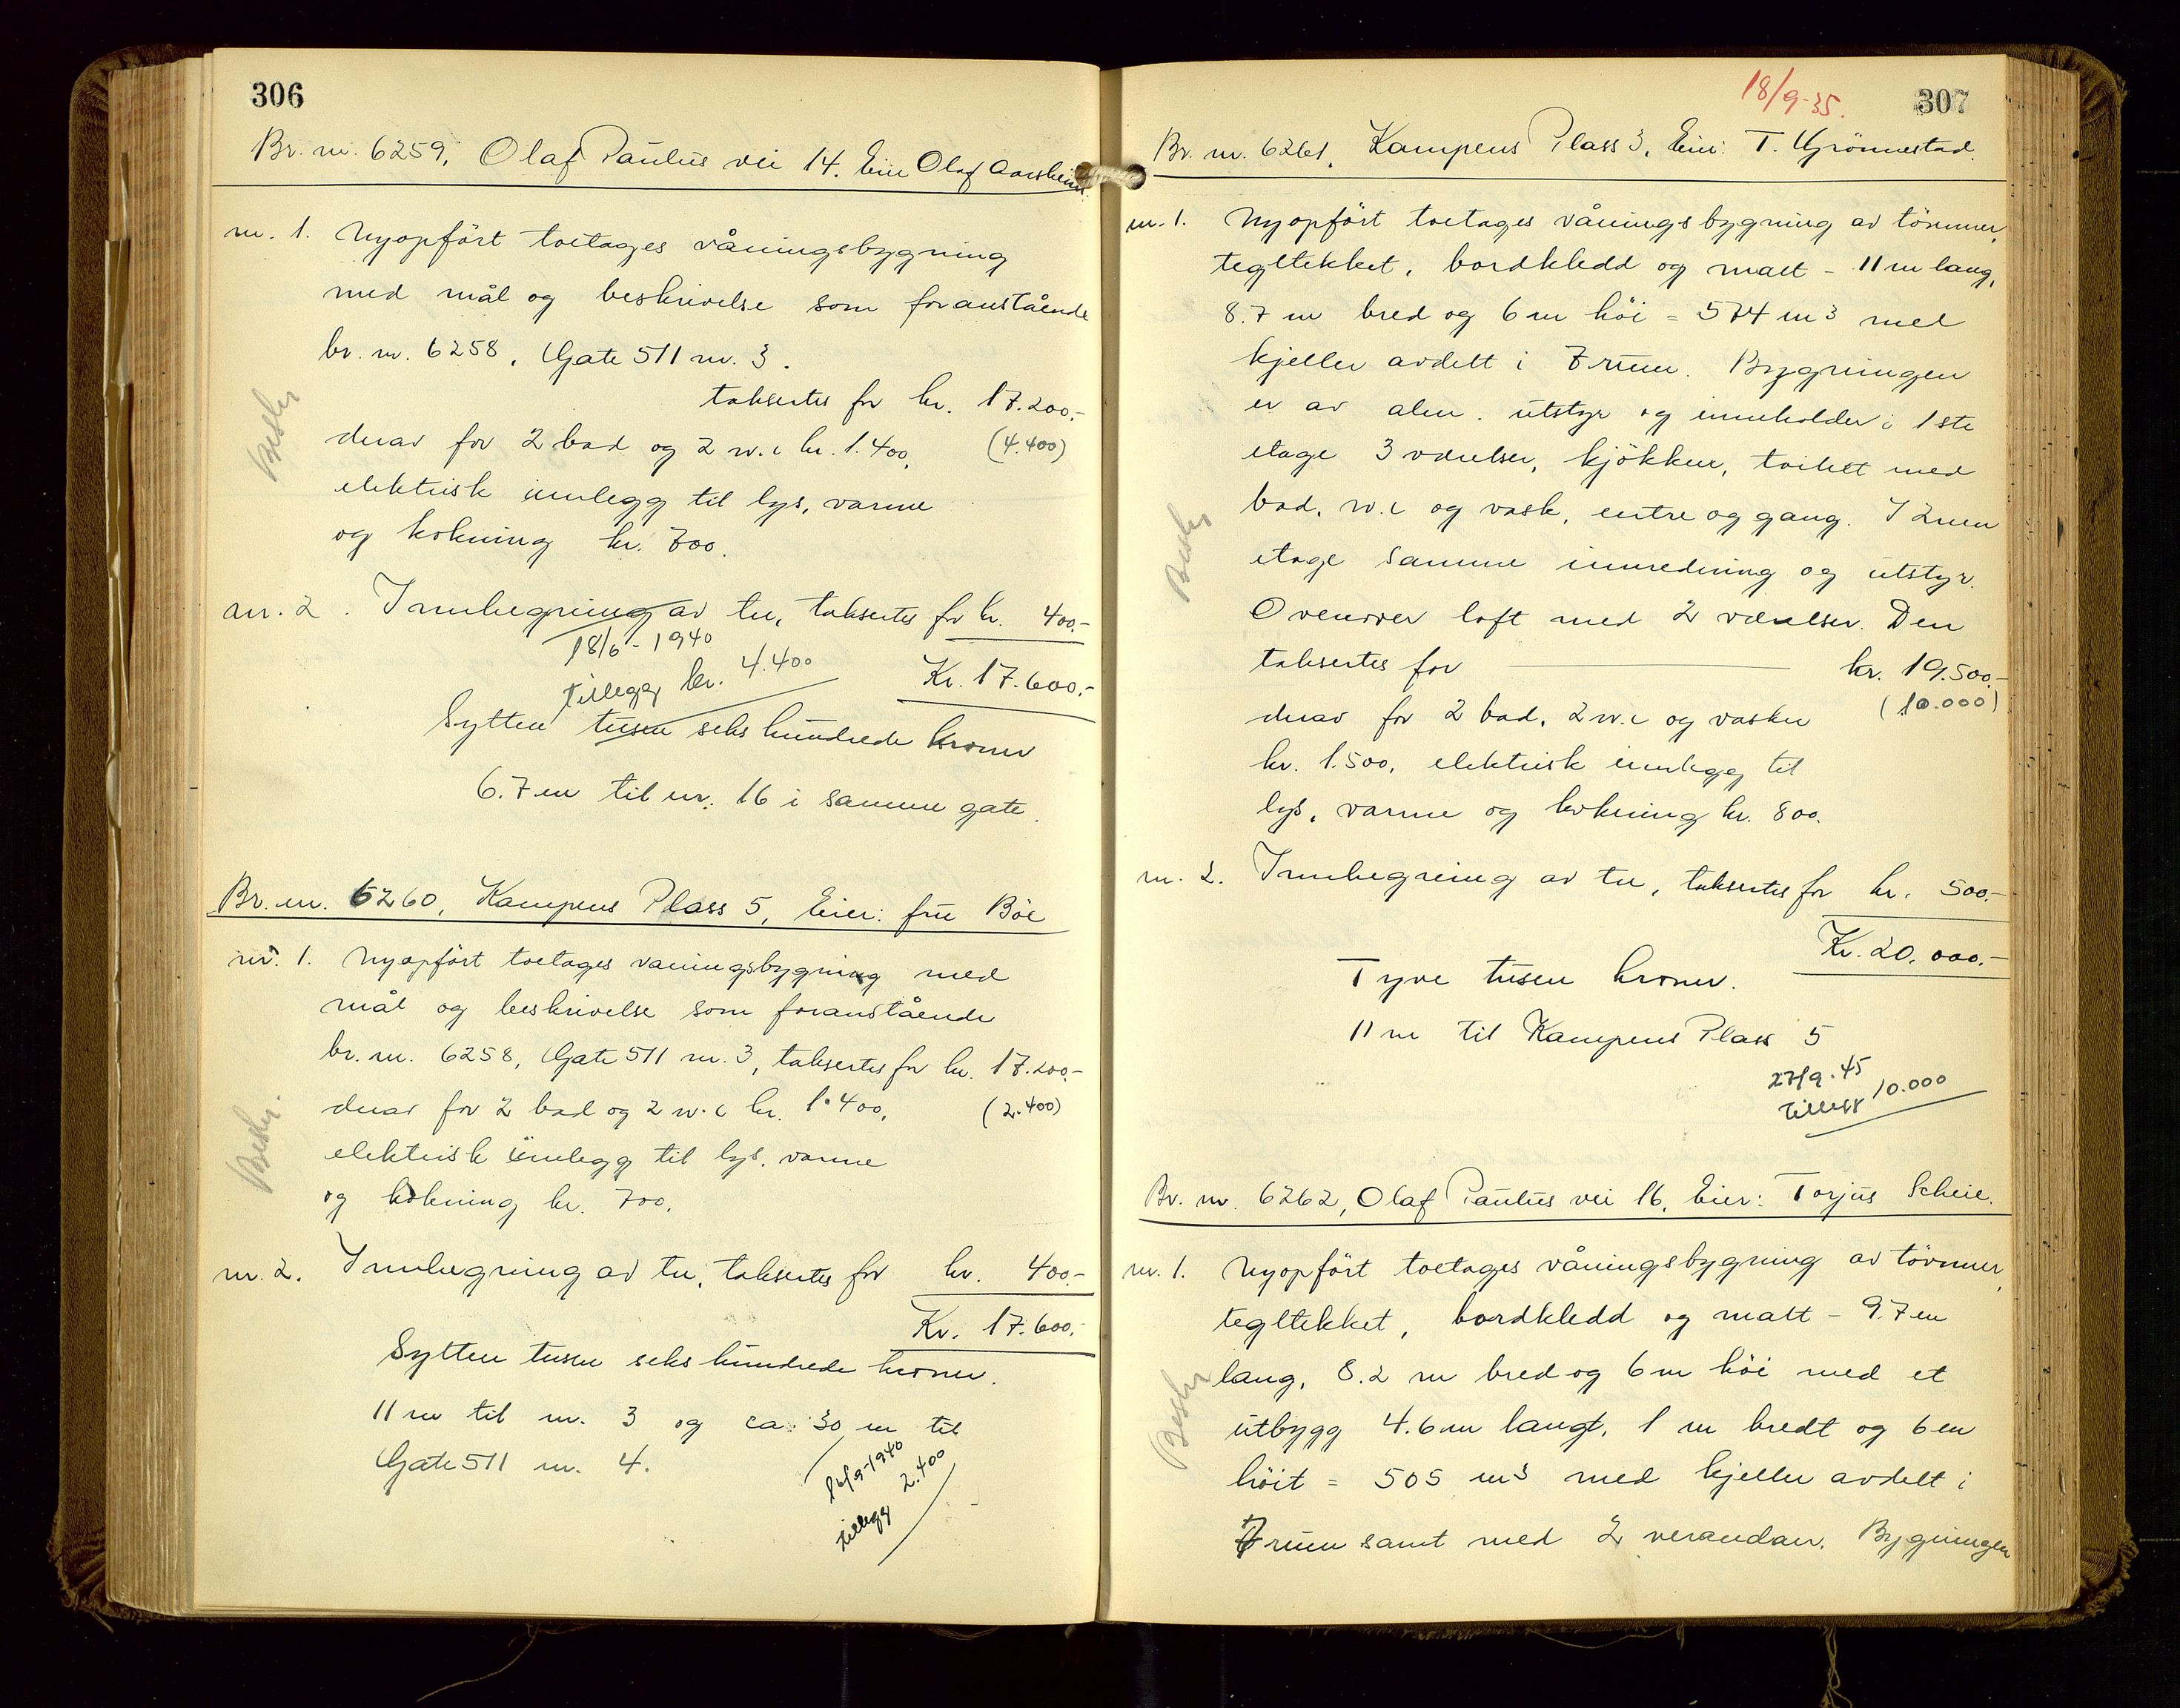 306
Br. nr. 6259, Olaf Paulus vei 14. Eier Olaf Aarsheim
nr. 1. Nyopført toetages våningsbygning
med mål og beskrivelse som foranstående
br. nr. 6258, Gate 511 nr. 3.
taksertes for kr. 17.200.-
derav for 2 bad og 2 w.c kr. 1.400, (4.400)
elektrisk innlegg til lys, varme
og kokning kr. 700.
nr. 2. Innhegning av tre, taksertes for kr. 400.-
18/6-1940
Tillegg kr. 4.400
Kr. 17.600.-
Sytten tusen seks hundrede kroner
6.7 m til nr. 16 i samme gate.
Br. nr. 6260, Kampens Plass 5, Eier: fru Böe
nr. 1. Nyopfört toetages våningsbygning med
mål og beskrivelse som foranstående
br. nr. 6258, Gate 511 nr. 3, taksertes for kr. 17.200.-
derav for 2 bad og 2 w.c kr. 1.400, (2.400)
elektrisk innlegg til lys, varme
og kokning kr. 700.
nr. 2. Innhegning av tre, taksertes for kr. 400.-
Kr. 17.600.-
Sytten tusen seks hundrede kroner.
11 m til nr. 3 og ca. 30 m til
Gate 511 nr. 4.
16/9-1940
tillegg 2.400
Beskr.
Beskr.
18/9-35.
307
Br. nr. 6261, Kampens Plass 3, Eier: T. Grönnestad.
nr. 1. Nyopfört toetages våningsbygning av tömmer,
tegltekket, bordkledd og malt - 11 m lang,
8.7 m bred og 6 m höi = 574 m3 med
kjeller avdelt i 7 rum. Bygningen
er av alm. utstyr og inneholder i 1ste
etage 3 værelser, kjökken, toilett med
bad, w.c og vask, entre og gang. I 2nen
etage samme innredning og utstyr.
Ovenover loft med 2 værelser. Den
taksertes for kr. 19.500.-
derav for 2 bad, 2 w.c og vasker (10.000)
kr. 1.500, elektrisk innlegg til
lys, varme og kokning kr. 800.
nr. 2. Innhegning av tre, taksertes for kr. 500.-
Kr. 20.000.-
Tyve tusen kroner.
11 m til Kampens Plass 5
27/9.45
Tillegg 10.000
Br. nr. 6262, Olaf Paulus vei 16, Eier: Torjus Scheie.
nr. 1. Nyopfört toetages våningsbygning av tömmer,
tegltekket, bordkledd og malt - 9.7 m
lang, 8.2 m bred og 6 m höi med et
utbygg 4.6 m langt, 1 m bredt og 6 m
höit = 505 m3 med kjeller avdelt i
7 rum samt med 2 verandaer. Bygningen
Beskr
Beskr